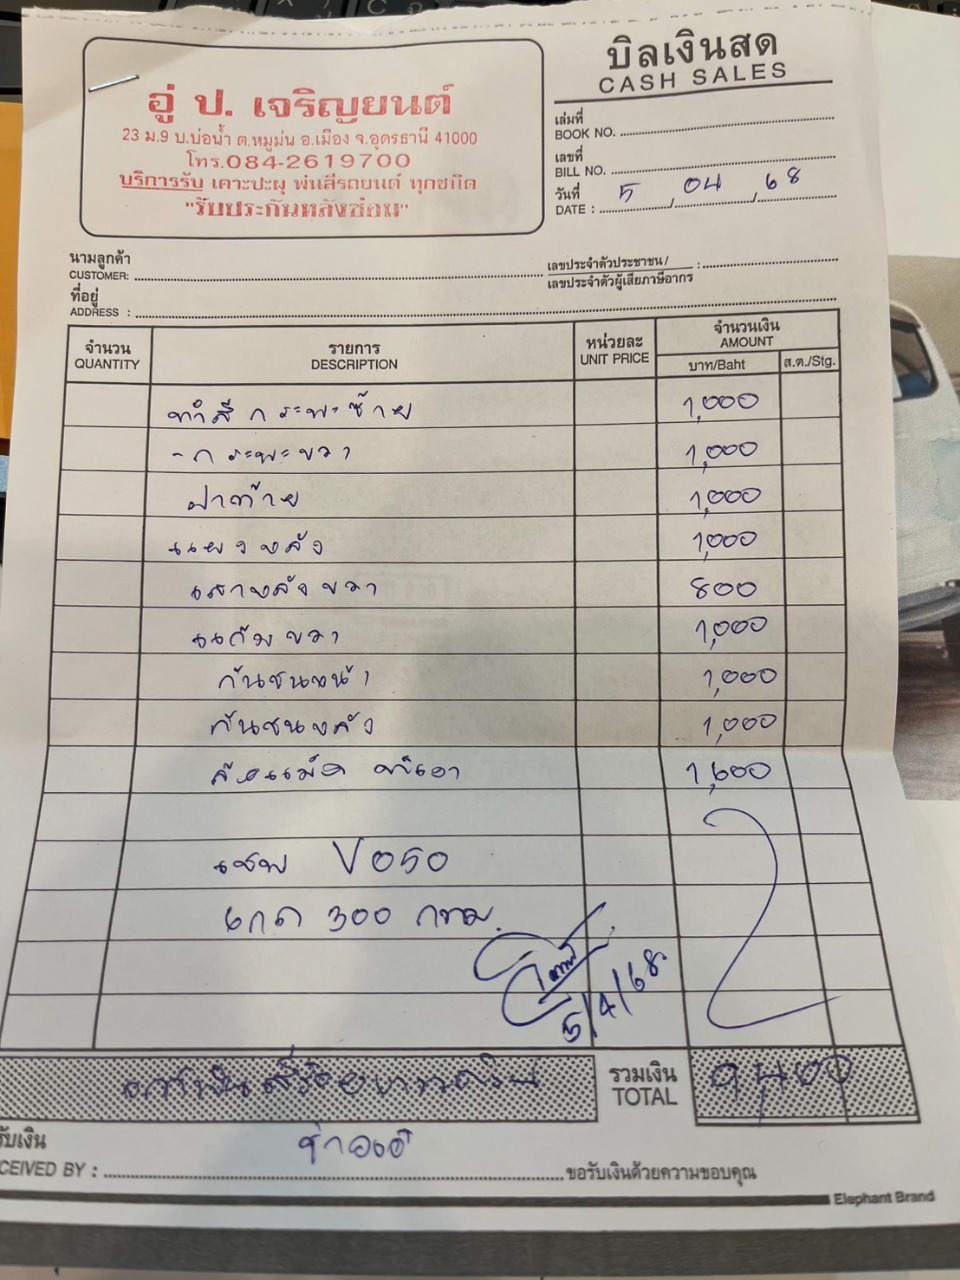 บิลเงินสด
CASH SALES
อู่ ป. เจริญยนต์
23 ม.9 บ.บ่อน้ำ ต.หมูม่น อ.เมือง จ.อุดรธานี 41000
โทร.084-2619700
บริการรับ เคาะปะผุ พ่นสีรถยนต์ ทุกชนิด
"รับประกันหลังซ่อม"
เล่มที่
BOOK NO.
เลขที่
BILL NO.
วันที่
DATE : 5 / 04 / 68
นามลูกค้า
CUSTOMER:
เลขประจำตัวประชาชน /
เลขประจำตัวผู้เสียภาษีอากร :
ที่อยู่
ADDRESS :
จำนวน รายการ หน่วยละ จำนวนเงิน
QUANTITY DESCRIPTION UNIT PRICE AMOUNT
บาท/Baht ส.ต./Stg.
ทำสีกระพะซ้าย 1,000
- กระพะขวา 1,000
ฝาท้าย 1,000
แผงหลัง 1,000
เสาหลังขวา 800
แก้มขวา 1,000
กันชนหน้า 1,000
กันชนหลัง 1,000
1,600
เชฟ V050
300 กทม.
5/4/68
รวมเงิน 9,400
TOTAL
รับเงิน
CEIVED BY : ขอรับเงินด้วยความขอบคุณ
Elephant Brand